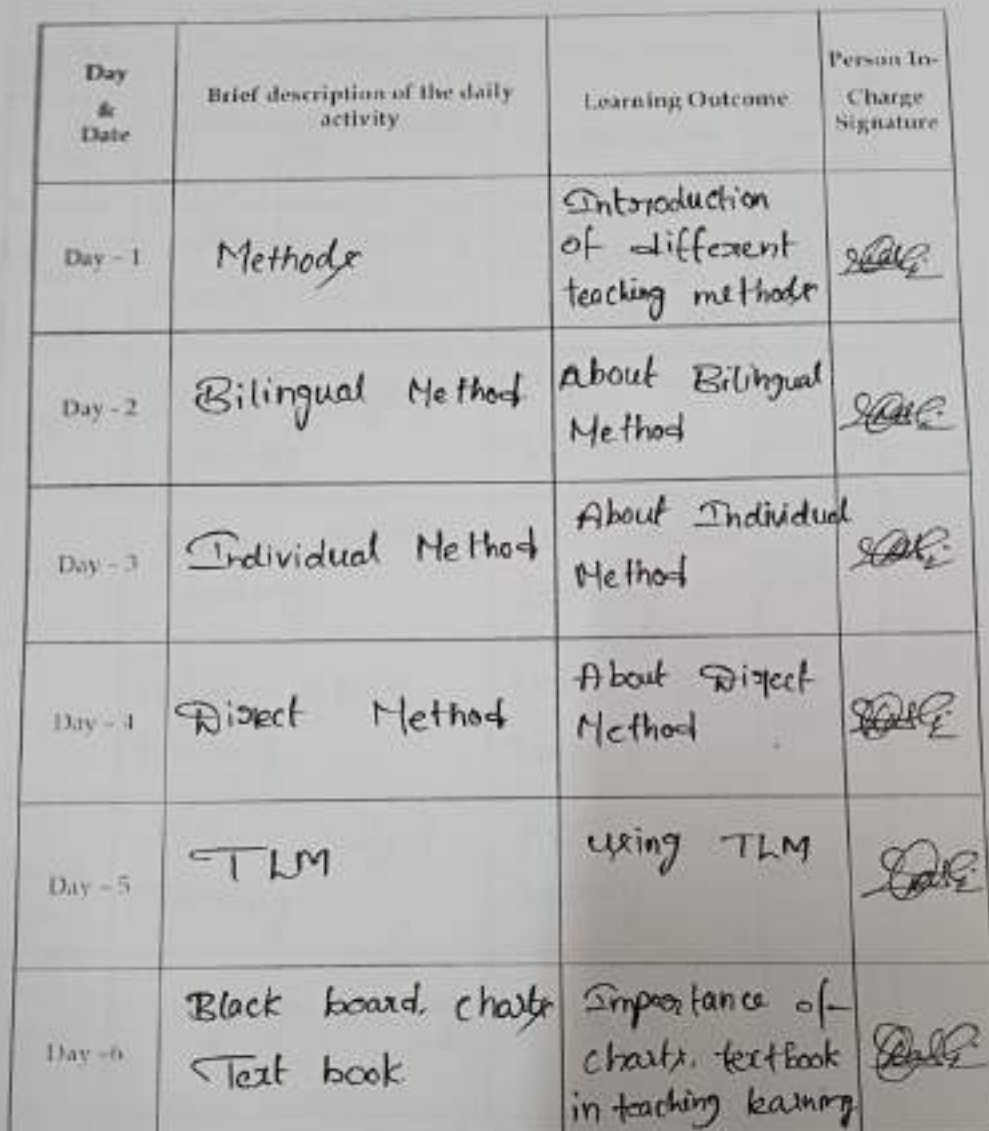 Day
&
Date
Brief description of the daily
activity
Learning Outcome
Person In-
Charge
Signature
Day - 1
Methods
Introduction
of different
teaching methods
Day - 2
Bilingual Method
About Bilingual
Method
Day - 3
Individual Method
About Individual
Method
Day - 4
Direct Method
About Direct
Method
Day - 5
TLM
using TLM
Day -6
Black board, charts
Text book
Importance of
charts, textbook
in teaching learning